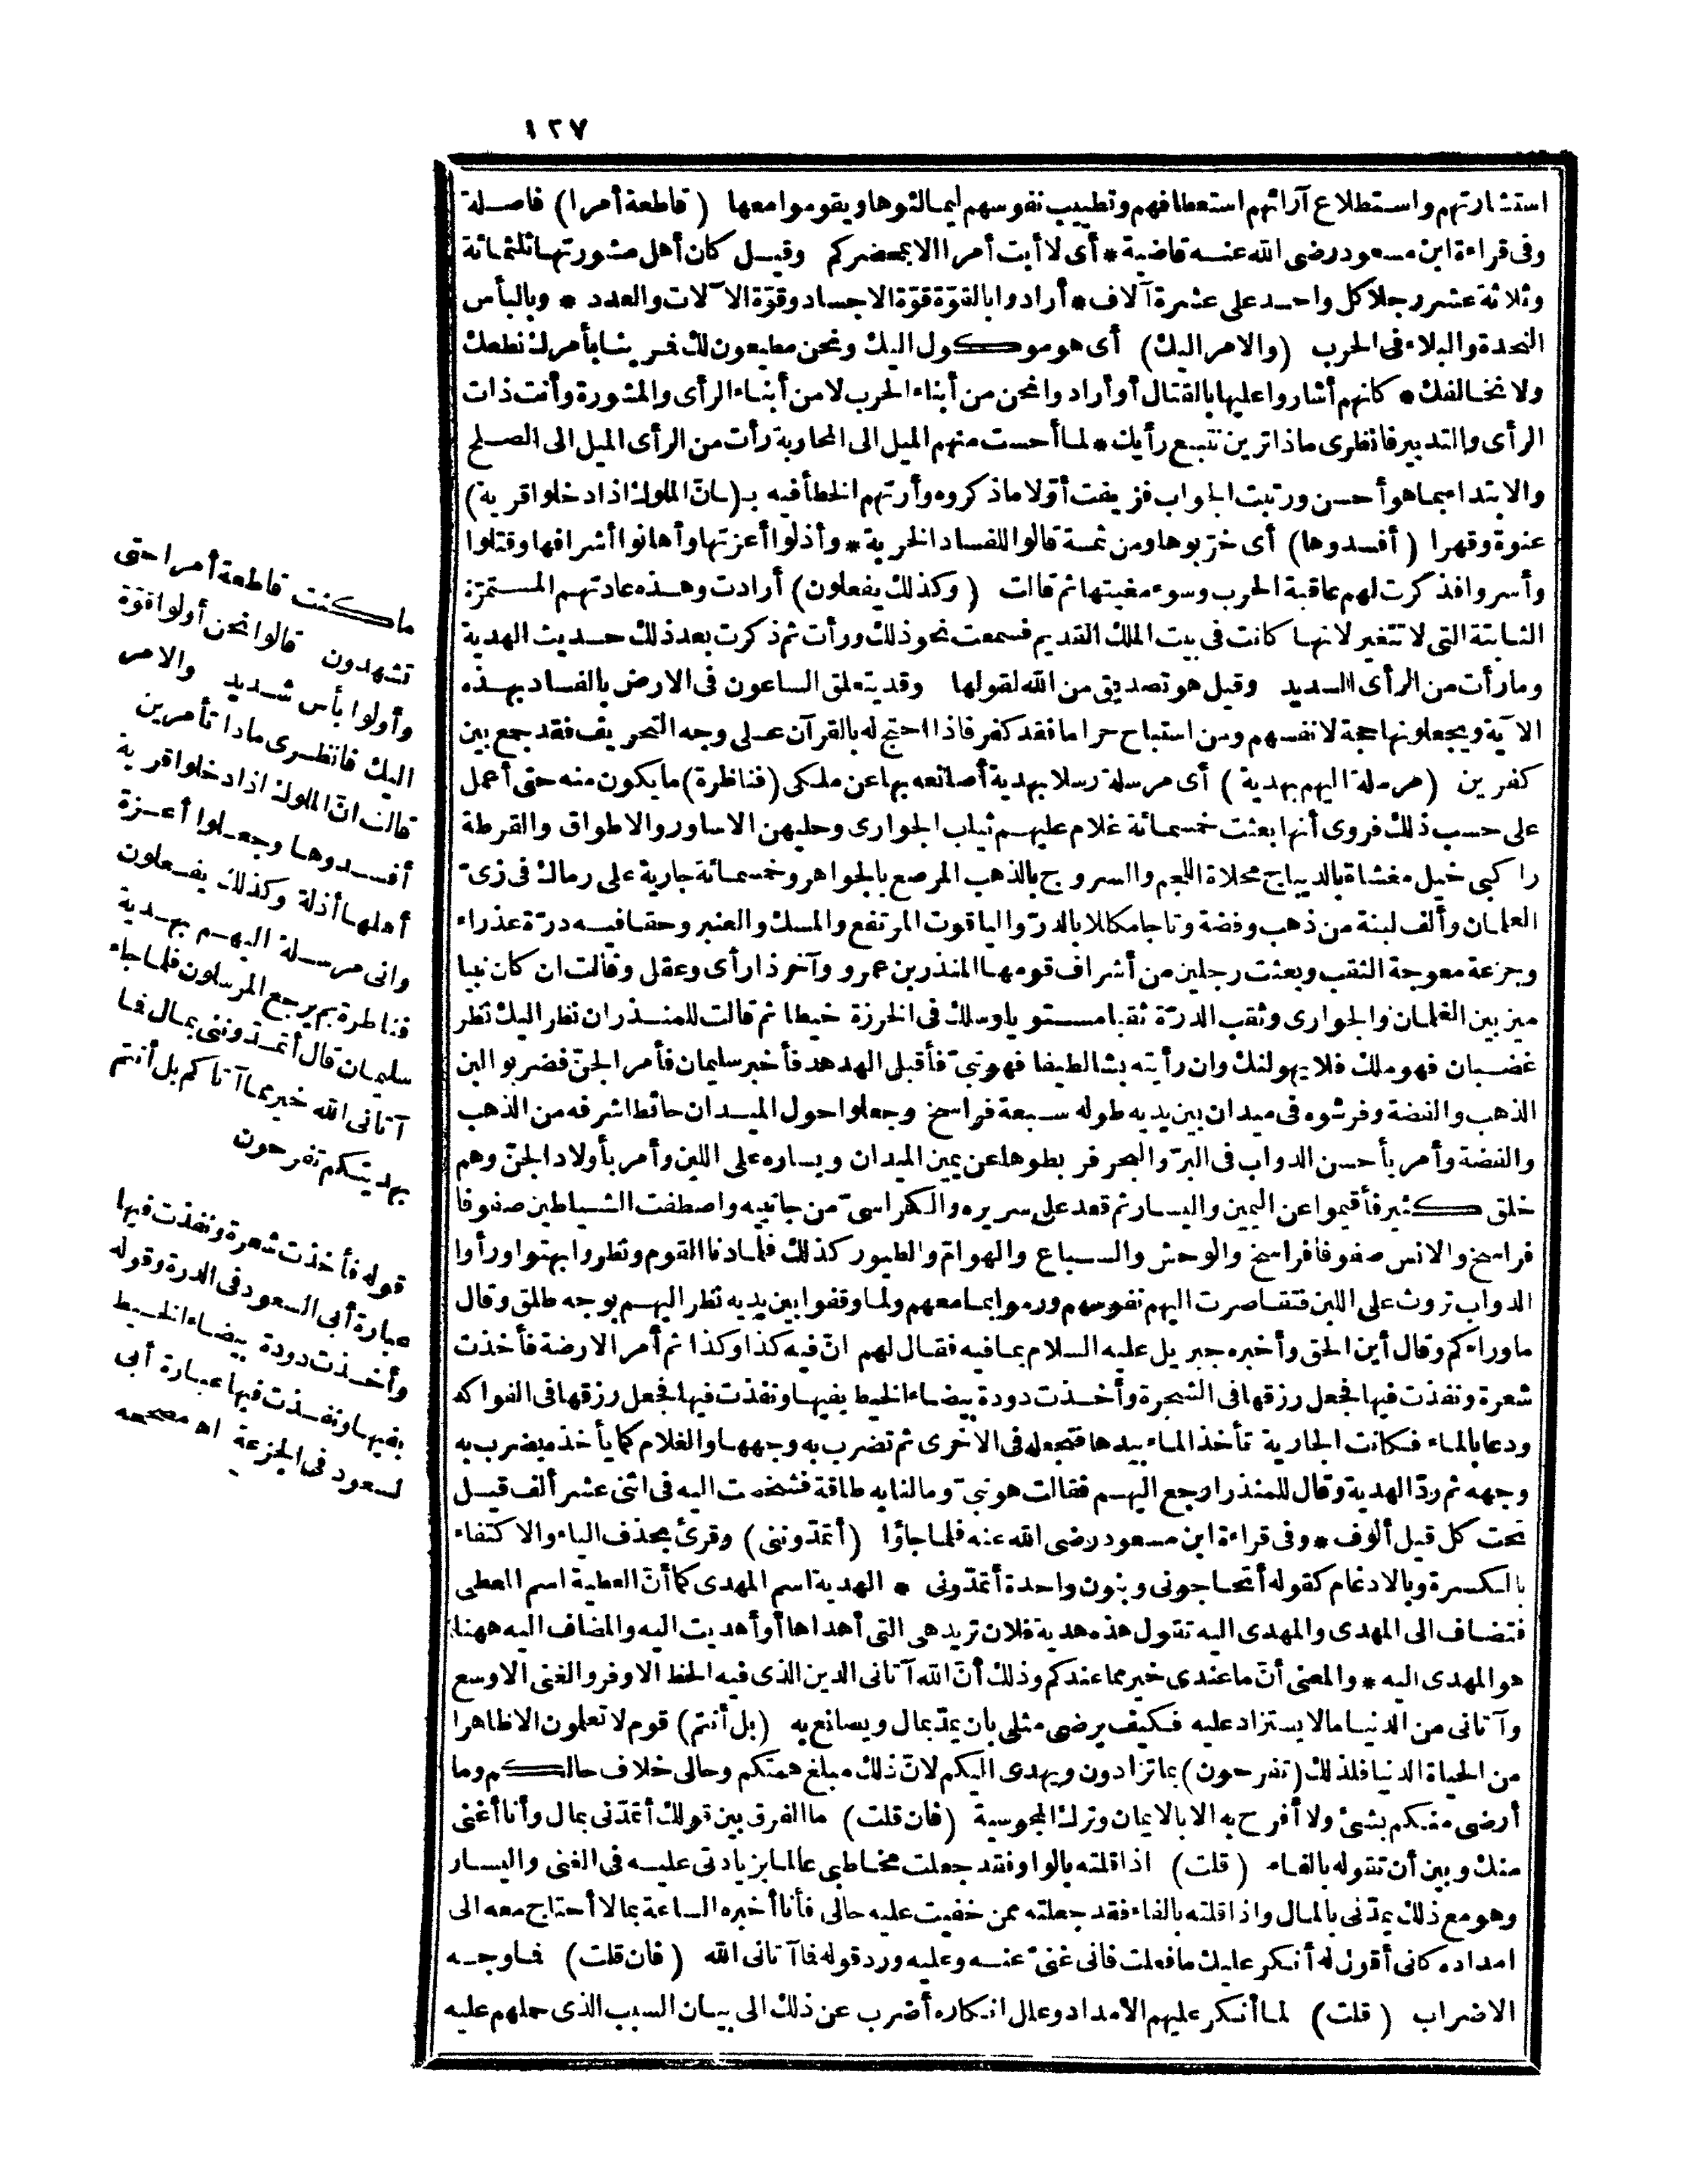 ١٢٧
استشارتهم واستطلاع آرائهم استعطافهم وتطييب نفوسهم ليمالئوها ويقوموا معها (قاطعة أمرا) فاصلة
وفى قراءة ابن مسعود رضى الله عنه قاضية * أى لا أبت أمرا الا بمحضركم وقيل كان أهل مشورتها ثلثمائة
وثلاثة عشر رجلا كل واحد على عشرة آلاف * أرادوا بالقوّة قوّة الاجساد وقوّة الآلات والعدد * وبالبأس
النجدة والبلاء فى الحرب (والامر اليك) أى هو موكول اليك ونحن مطيعون لك فمرينا بأمرك نطعك
ولا نخالفك * كانهم أشاروا عليها بالقتال أو أرادوا نحن من أبناء الحرب لا من أبناء الرأى والمشورة وأنت ذات
الرأى والتدبير فانظرى ماذا ترين نتبع رأيك * لما أحست منهم الميل الى المحاربة رأت من الرأى الميل الى الصلح
والابتداء بما هو أحسن ورتبت الجواب فزيفت أوّلا ما ذكروه وأرتهم الخطأ فيه بـ(ـانّ الملوك اذا دخلوا قرية)
عنوة وقهرا (أفسدوها) أى خرّبوها ومن ثمة قالوا للفساد الخربة * وأذلوا أعزتها وأهانوا أشرافها وقتلوا
وأسروا فذكرت لهم عاقبة الحرب وسوء مغبتها ثم قالت (وكذلك يفعلون) أرادت وهذه عادتهم المستمرّة
الثابتة التى لا تتغير لانها كانت فى بيت الملك القديم فسمعت نحو ذلك ورأت ثم ذكرت بعد ذلك حديث الهدية
وما رأت من الرأى السديد وقيل هو تصديق من الله لقولها وقد يتعلق الساعون فى الارض بالفساد بهذه
الآية ويجعلونها حجة لانفسهم ومن استباح حراما فقد كفر فاذا احتج له بالقرآن على وجه التحريف فقد جمع بين
كفرين (مرسلة اليهم بهدية) أى مرسلة رسلا بهدية أصانعه بها عن ملكى (فناظرة) ما يكون منه حتى أعمل
على حسب ذلك فروى أنها بعثت خمسمائة غلام عليهم ثياب الجوارى وحليهن الاساور والاطواق والقرطة
راكبى خيل مغشاة بالديباج محلاة اللجم والسروج بالذهب المرصع بالجواهر وخمسمائة جارية على رماك فى زىّ
الغلمان وألف لبنة من ذهب وفضة وتاجا مكللا بالدرّ والياقوت المرتفع والمسك والعنبر وحقا فيه درّة عذراء
وجزعة معوجة الثقب وبعثت رجلين من أشراف قومها المنذر بن عمرو وآخر ذا رأى وعقل وقالت ان كان نبيا
ميز بين الغلمان والجوارى وثقب الدرّة ثقبا مستويا وسلك فى الخرزة خيطا ثم قالت للمنذر ان نظر اليك نظر
غضبان فهو ملك فلا يهولنك وان رأيته بشا لطيفا فهو نبىّ فأقبل الهدهد فأخبر سليمان فأمر الجنّ فضربوا لبن
الذهب والفضة وفرشوه فى ميدان بين يديه طوله سبعة فراسخ وجعلوا حول الميدان حائطا شرفه من الذهب
والفضة وأمر بأحسن الدواب فى البرّ والبحر فربطوها عن يمين الميدان ويساره على اللبن وأمر بأولاد الجنّ وهم
خلق كثير فأقيموا عن اليمين واليسار ثم قعد على سريره والكراسىّ من جانبيه واصطفت الشياطين صفوفا
فراسخ والانس صفوفا فراسخ والوحش والسباع والهوامّ والطيور كذلك فلما دنا القوم ونظروا بهتوا ورأوا
الدواب تروث على اللبن فتقاصرت اليهم نفوسهم ورموا بما معهم ولما وقفوا بين يديه نظر اليهم بوجه طلق وقال
ما وراءكم وقال أين الحق وأخبره جبريل عليه السلام بما فيه فقال لهم انّ فيه كذا وكذا ثم أمر الارضة فأخذت
شعرة ونفذت فيها فجعل رزقها فى الشجرة وأخذت دودة بيضاء الخيط بفيها ونفذت فيها فجعل رزقها فى الفواكه
ودعا بالماء فكانت الجارية تأخذ الماء بيدها فتجعله فى الاخرى ثم تضرب به وجهها والغلام كما يأخذه يضرب به
وجهه ثم ردّ الهدية وقال للمنذر ارجع اليهم فقالت هو نبىّ وما لنا به طاقة فشخصت اليه فى اثنى عشر ألف قيل
تحت كل قيل ألوف * وفى قراءة ابن مسعود رضى الله عنه فلما جاؤا (أتمدّوننى) وقرئ بحذف الياء والاكتفاء
بالكسرة وبالادغام كقوله أتحاجونى وبنون واحدة أتمدّونى * الهدية اسم المهدى كما أنّ العطية اسم المعطى
فتضاف الى المهدى والمهدى اليه تقول هذه هدية فلان تريد هى التى أهداها أو أهديت اليه والمضاف اليه ههنا
هو المهدى اليه * والمعنى أنّ ما عندى خير مما عندكم وذلك أنّ الله آتانى الدين الذى فيه الحظ الاوفر والغنى الاوسع
وآتانى من الدنيا ما لا يستزاد عليه فكيف يرضى مثلى بان يمدّ بمال ويصانع به (بل أنتم) قوم لا تعلمون الا ظاهرا
من الحياة الدنيا فلذلك (تفرحون) بما تزادون ويهدى اليكم لانّ ذلك مبلغ همتكم وحالى خلاف حالكم وما
أرضى منكم بشئ ولا أفرح به الا بالايمان وترك المجوسية (فان قلت) ما الفرق بين قولك أتمدّنى بمال وأنا أغنى
منك وبين أن تقوله بالفاء (قلت) اذا قلته بالواو فقد جعلت مخاطبى عالما بزيادتى عليه فى الغنى واليسار
وهو مع ذلك يمدّنى بالمال واذا قلته بالفاء فقد جعلته ممن خفيت عليه حالى فأنا أخبره الساعة بما لا أحتاج معه الى
امداده كانى أقول له أنكر عليك ما فعلت فانى غنىّ عنه وعليه ورد قوله فما آتانى الله (فان قلت) فما وجه
الاضراب (قلت) لما أنكر عليهم الامداد وعلل انكاره أضرب عن ذلك الى بيان السبب الذى حملهم عليه
ما كنت قاطعة أمرا حتى
تشهدون قالوا نحن أولوا قوّة
وأولوا بأس شديد والامر
اليك فانظرى ماذا تأمرين
قالت انّ الملوك اذا دخلوا قرية
أفسدوها وجعلوا أعزة
أهلها أذلة وكذلك يفعلون
وانى مرسلة اليهم بهدية
فناظرة بم يرجع المرسلون فلما جاء
سليمان قال أتمدّوننى بمال فما
آتانى الله خير مما آتاكم بل أنتم
بهديتكم تفرحون
قوله فأخذت شعرة ونفذت فيها
عبارة أبى السعود فى الدرة وقوله
وأخذت دودة بيضاء الخيط
بفيها ونفذت فيها عبارة أبى
لسعود فى الجزعة اه مصححه